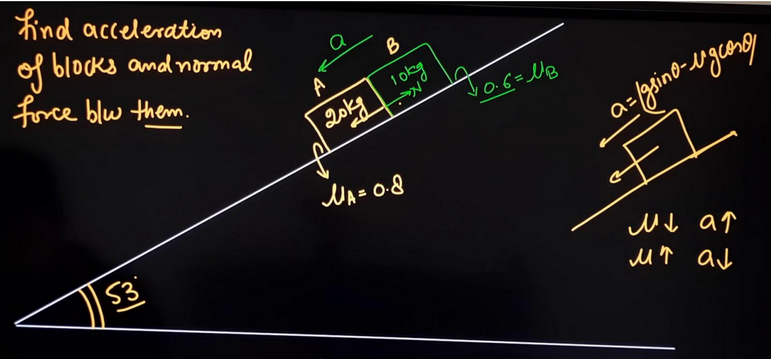 find acceleration
of blocks and normal
force b/w them.
a
A
B
20kg
10kg
N
0.6 = μB
μA = 0.8
53°
a = (gsinθ - μgcosθ)
μ↓ a↑
μ↑ a↓